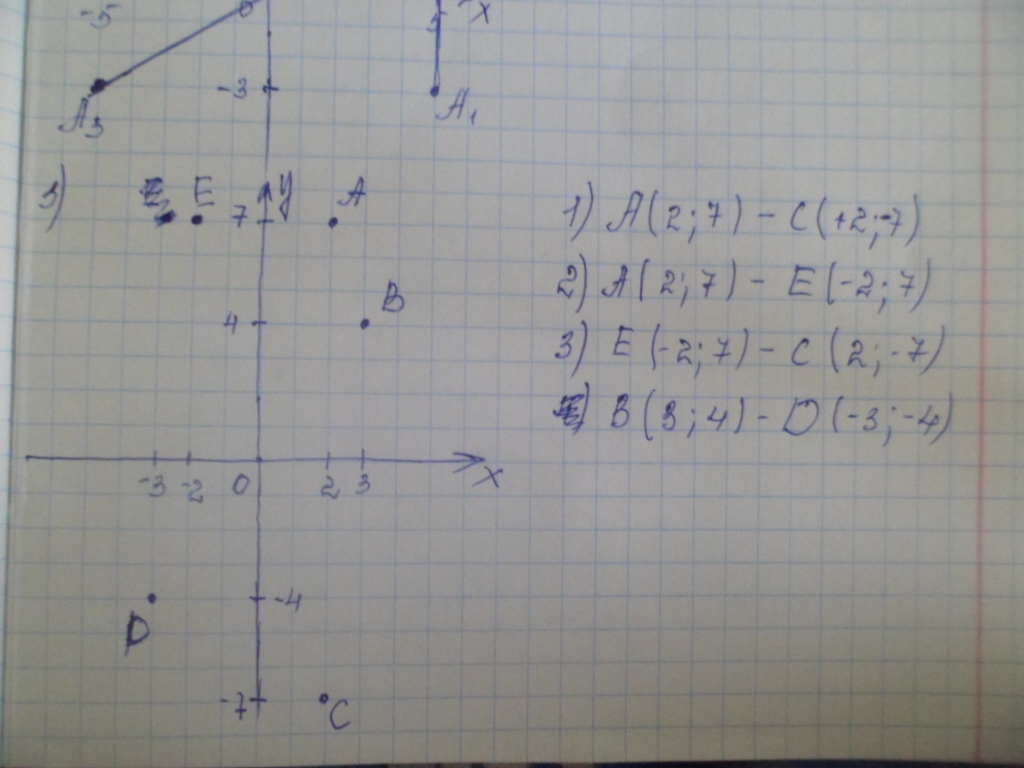 -5 0 5 X
-3
A3 A1
3) E y A
7
B
4
-3 -2 0 2 3 X
-4
D
-7 C
1) A(2;7) - C(+2;-7)
2) A(2;7) - E(-2;7)
3) E(-2;7) - C(2;-7)
B(3;4) - D(-3;-4)